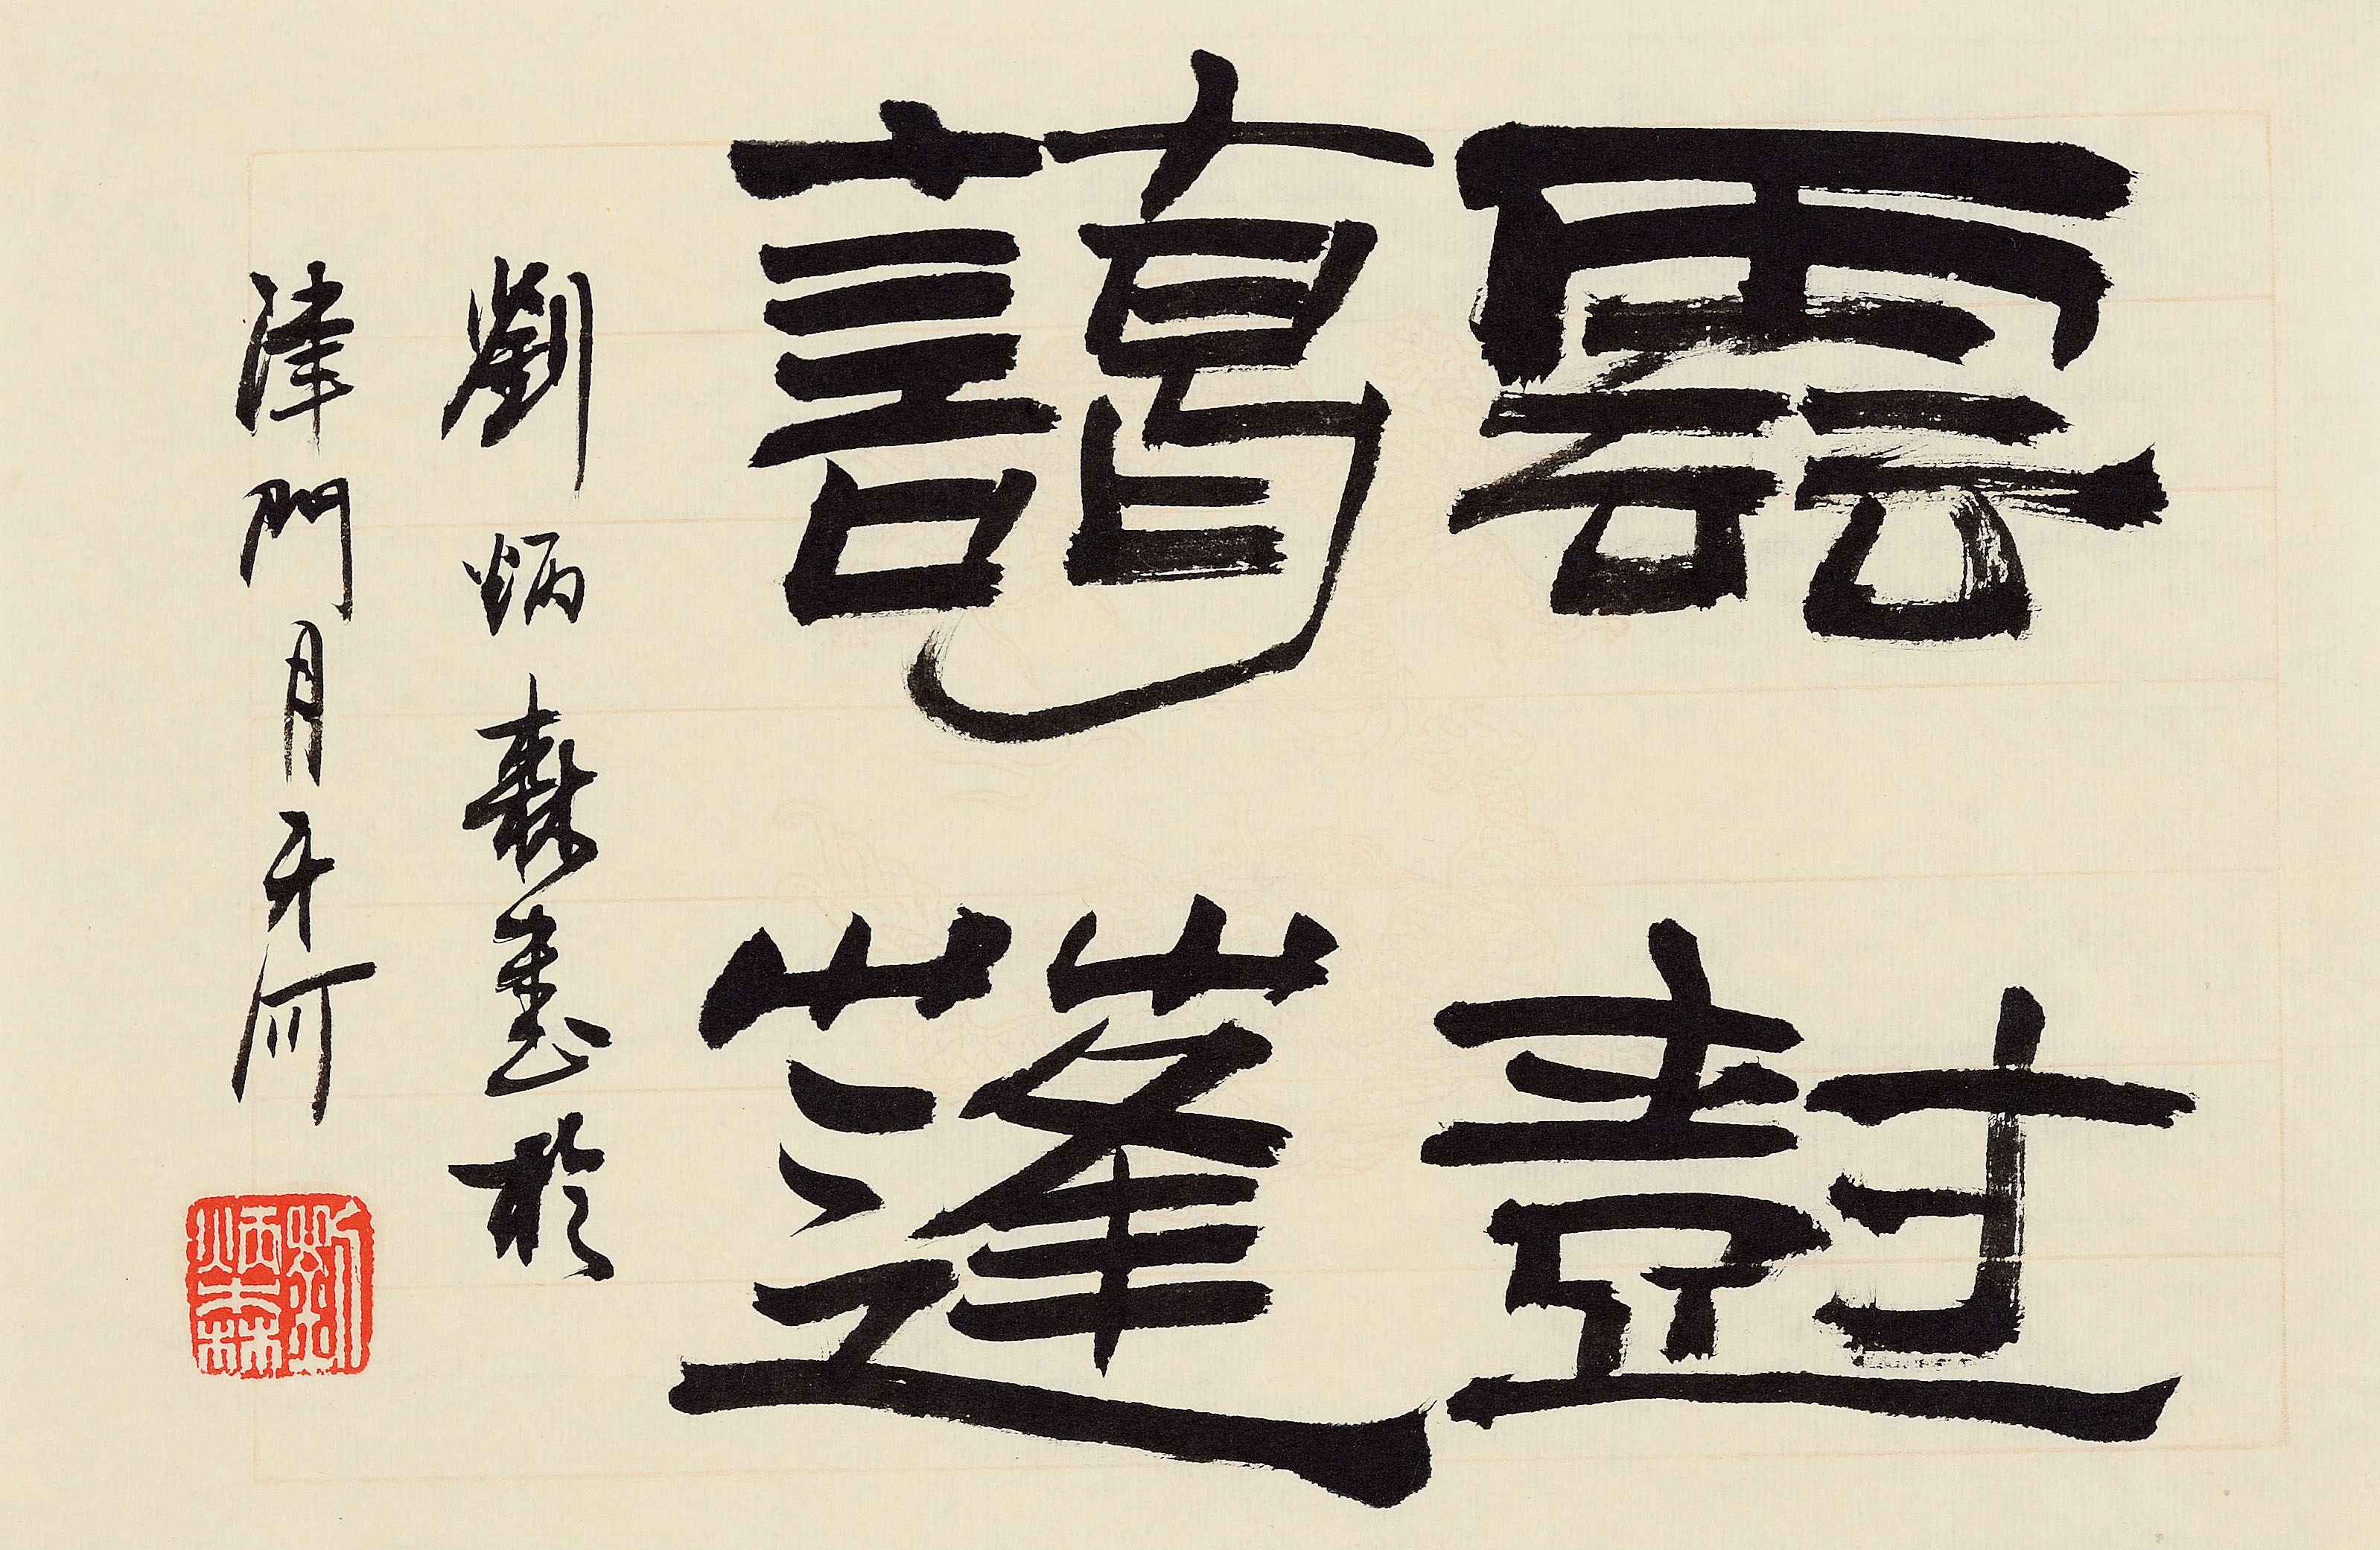 藹蓬
劉炳森書於
津門月牙河
劉
炳森